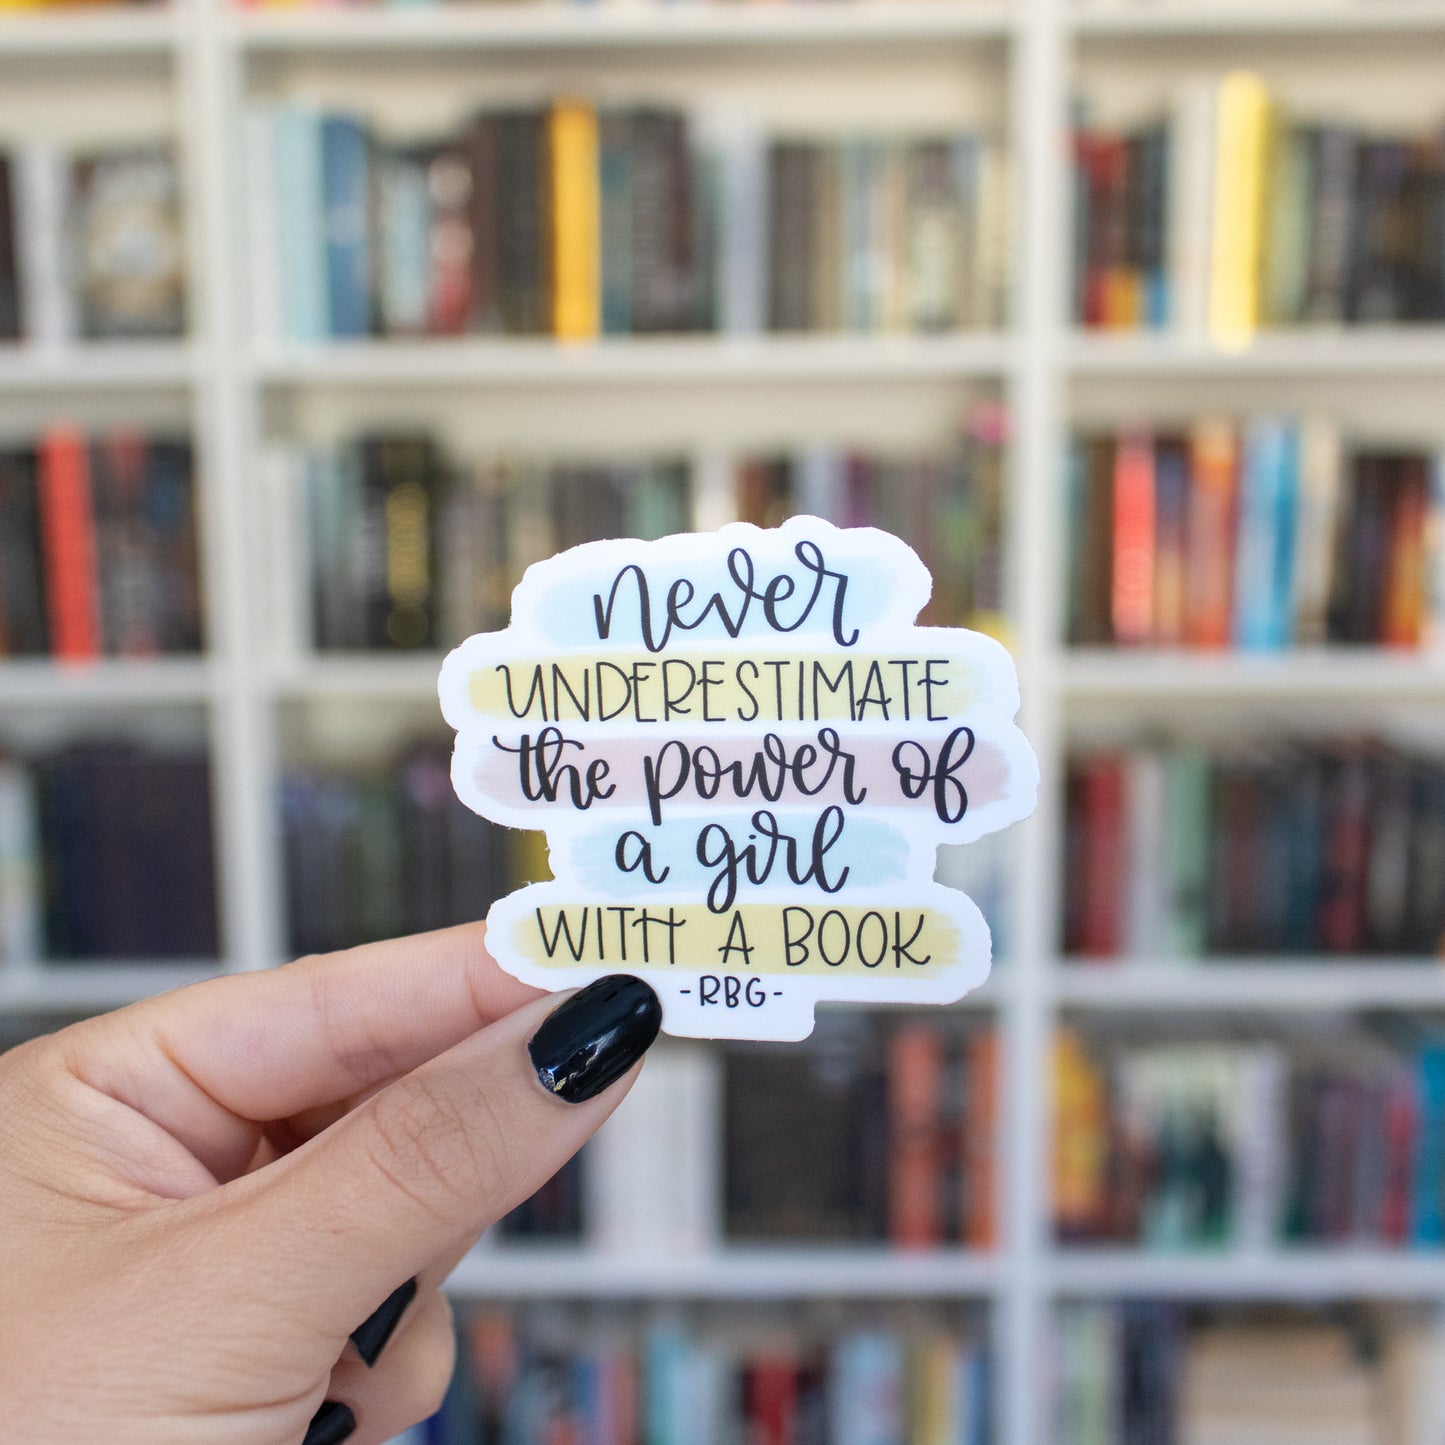 never
UNDERESTIMATE
the power of
a girl
WITH A BOOK
-RBG-